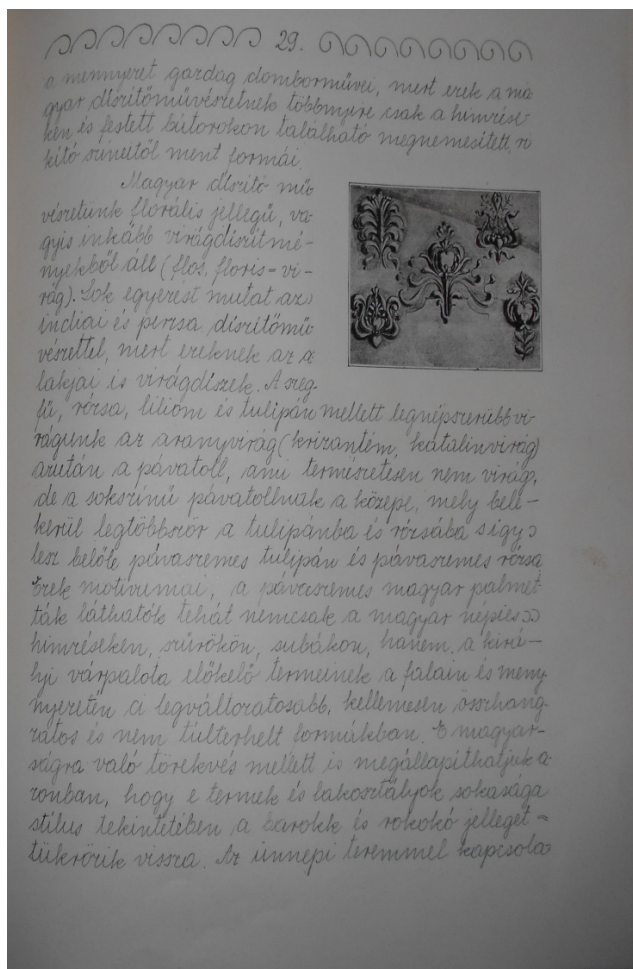 29.
a mennyezet gazdag domborművei, mert ezek a ma
gyar díszítőművészetnek többnyire csak a hímzése
ken és festett bútorokon található megnemesített, ri
kító színeitől ment formái.
Magyar díszítő mű
vészetünk florális jellegű, va
gyis inkább virágdíszítmé-
nyekből áll (flos, floris = vi-
rág). Sok egyezést mutat az
indiai és perzsa díszítőmű
vészettel, mert ezeknek az a
lakjai is virágdíszek. A szeg-
fű, rózsa, liliom és tulipán mellett legnépszerűbb vi-
rágunk az aranyvirág (krizantém, katalinvirág)
azután a pávatoll, ami természetesen nem virág,
de a sokszínű pávatollnak a közepe, mely bele-
kerül legtöbbször a tulipánba és rózsába s így
lesz belőle pávaszemes tulipán és pávaszemes rózsa
Ezek motívumai, a pávaszemes magyar palmet
ták láthatók tehát nemcsak a magyar népies
hímzéseken, szűrökön, subákon, hanem a kirá-
lyi várpalota előkelő termeinek a falain és meny
nyezetén a legváltozatosabb, kellemesen összhang
zatos és nem túlterhelt formákban. E magyar-
ságra való törekvés mellett is megállapíthatjuk a
zonban, hogy e termek és lakosztályok sokasága
stílus tekintetében a barokk és rokokó jelleget =
tükrözik vissza. Az ünnepi teremmel kapcsola